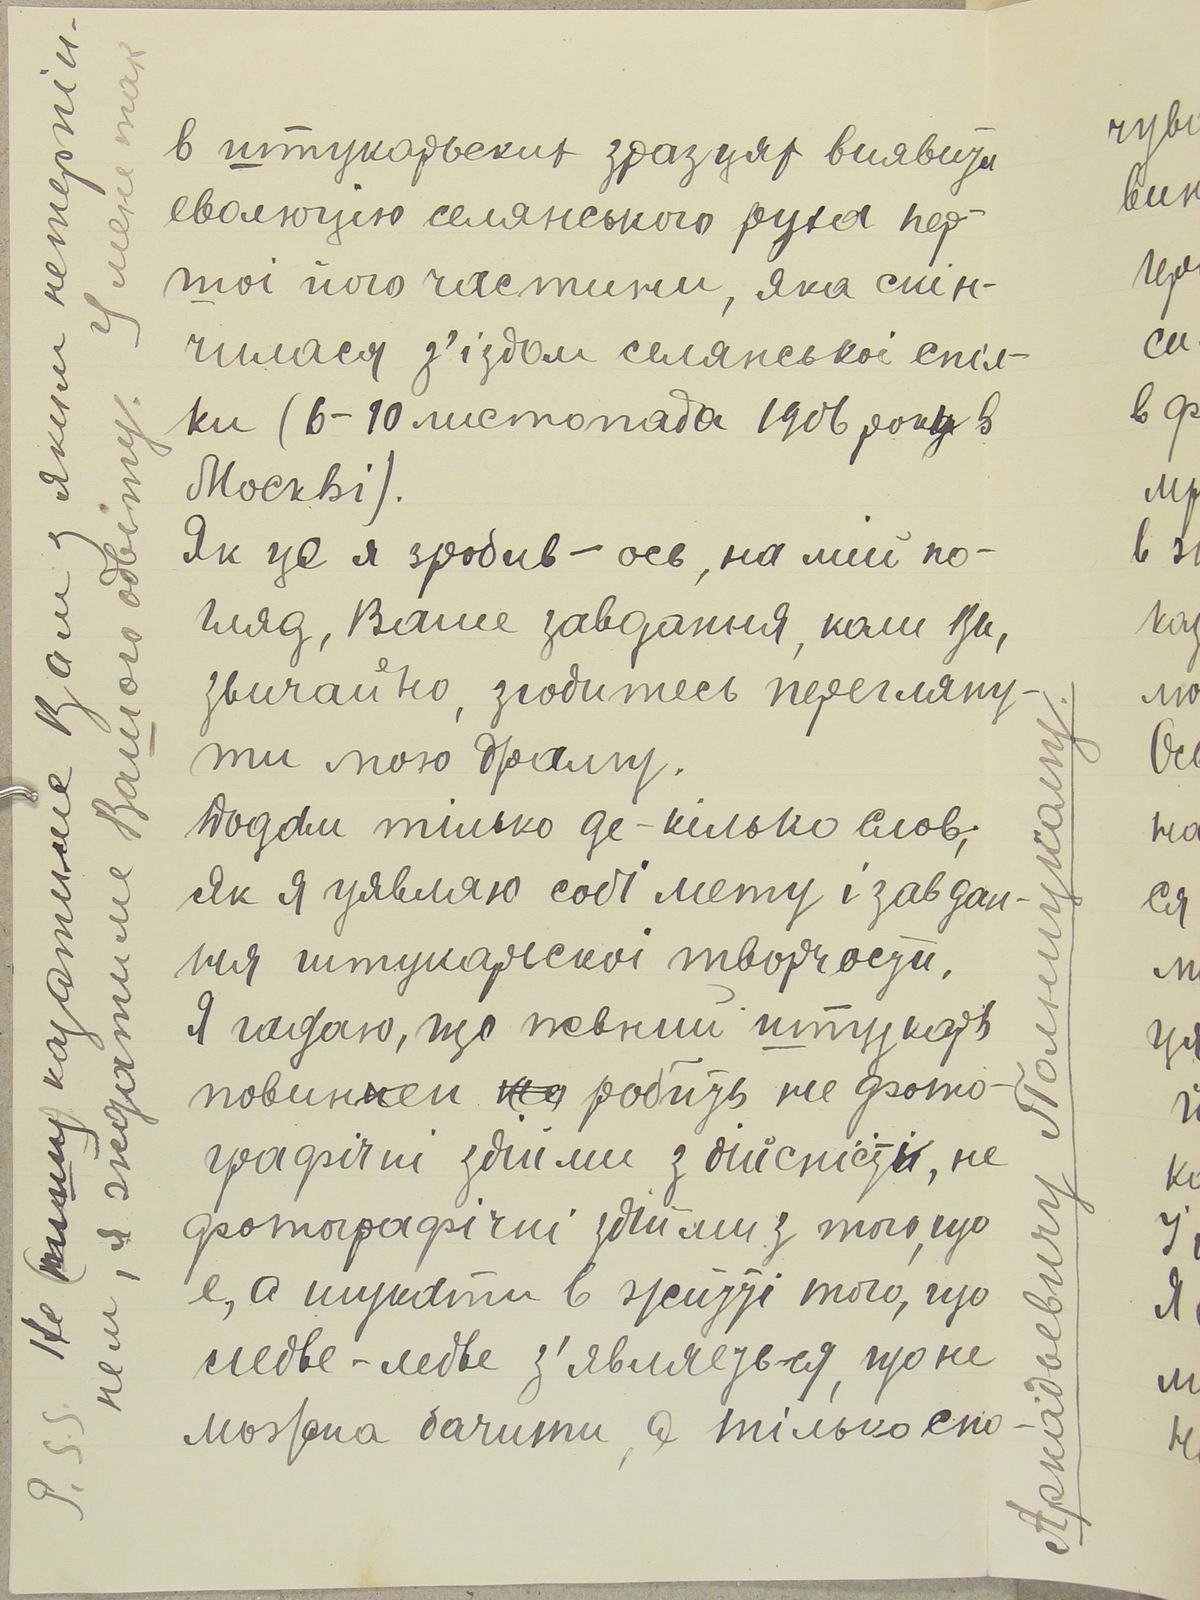 в штукарьских зразцях виявити
еволюцію селянського руха пер-
шоі його частини, яка скін-
чилася з'іздом селянськоі спіл-
ки (6-10 листопада 1906 року в
Москві).
Як це я зробив - ось, на мій по-
гляд, Ваше завдання, коли Ви,
звичайно, згодитесь переглягну-
ти мою драму.
Додам тілько де-кілько слов,
як я уявляю собі мету і завдан-
ня штукарськоі творчости.
Я гадаю, що певний штукарь
повинен робить не фото-
графічні здійми з дійсністи, не
фотографічні здійми з того, що
е, а шукати в житті того, що
ледве-ледве з'являеть-ся, що не
можна бачити, а тілько спо-
P.SS. Не казатиме Вам з яким нетерпін-
нем, я жидатиме Вашого одвіту. У мене так
Аркадьевичу Полницкому.
чува
вин
в ф
в з
на
ся
Я